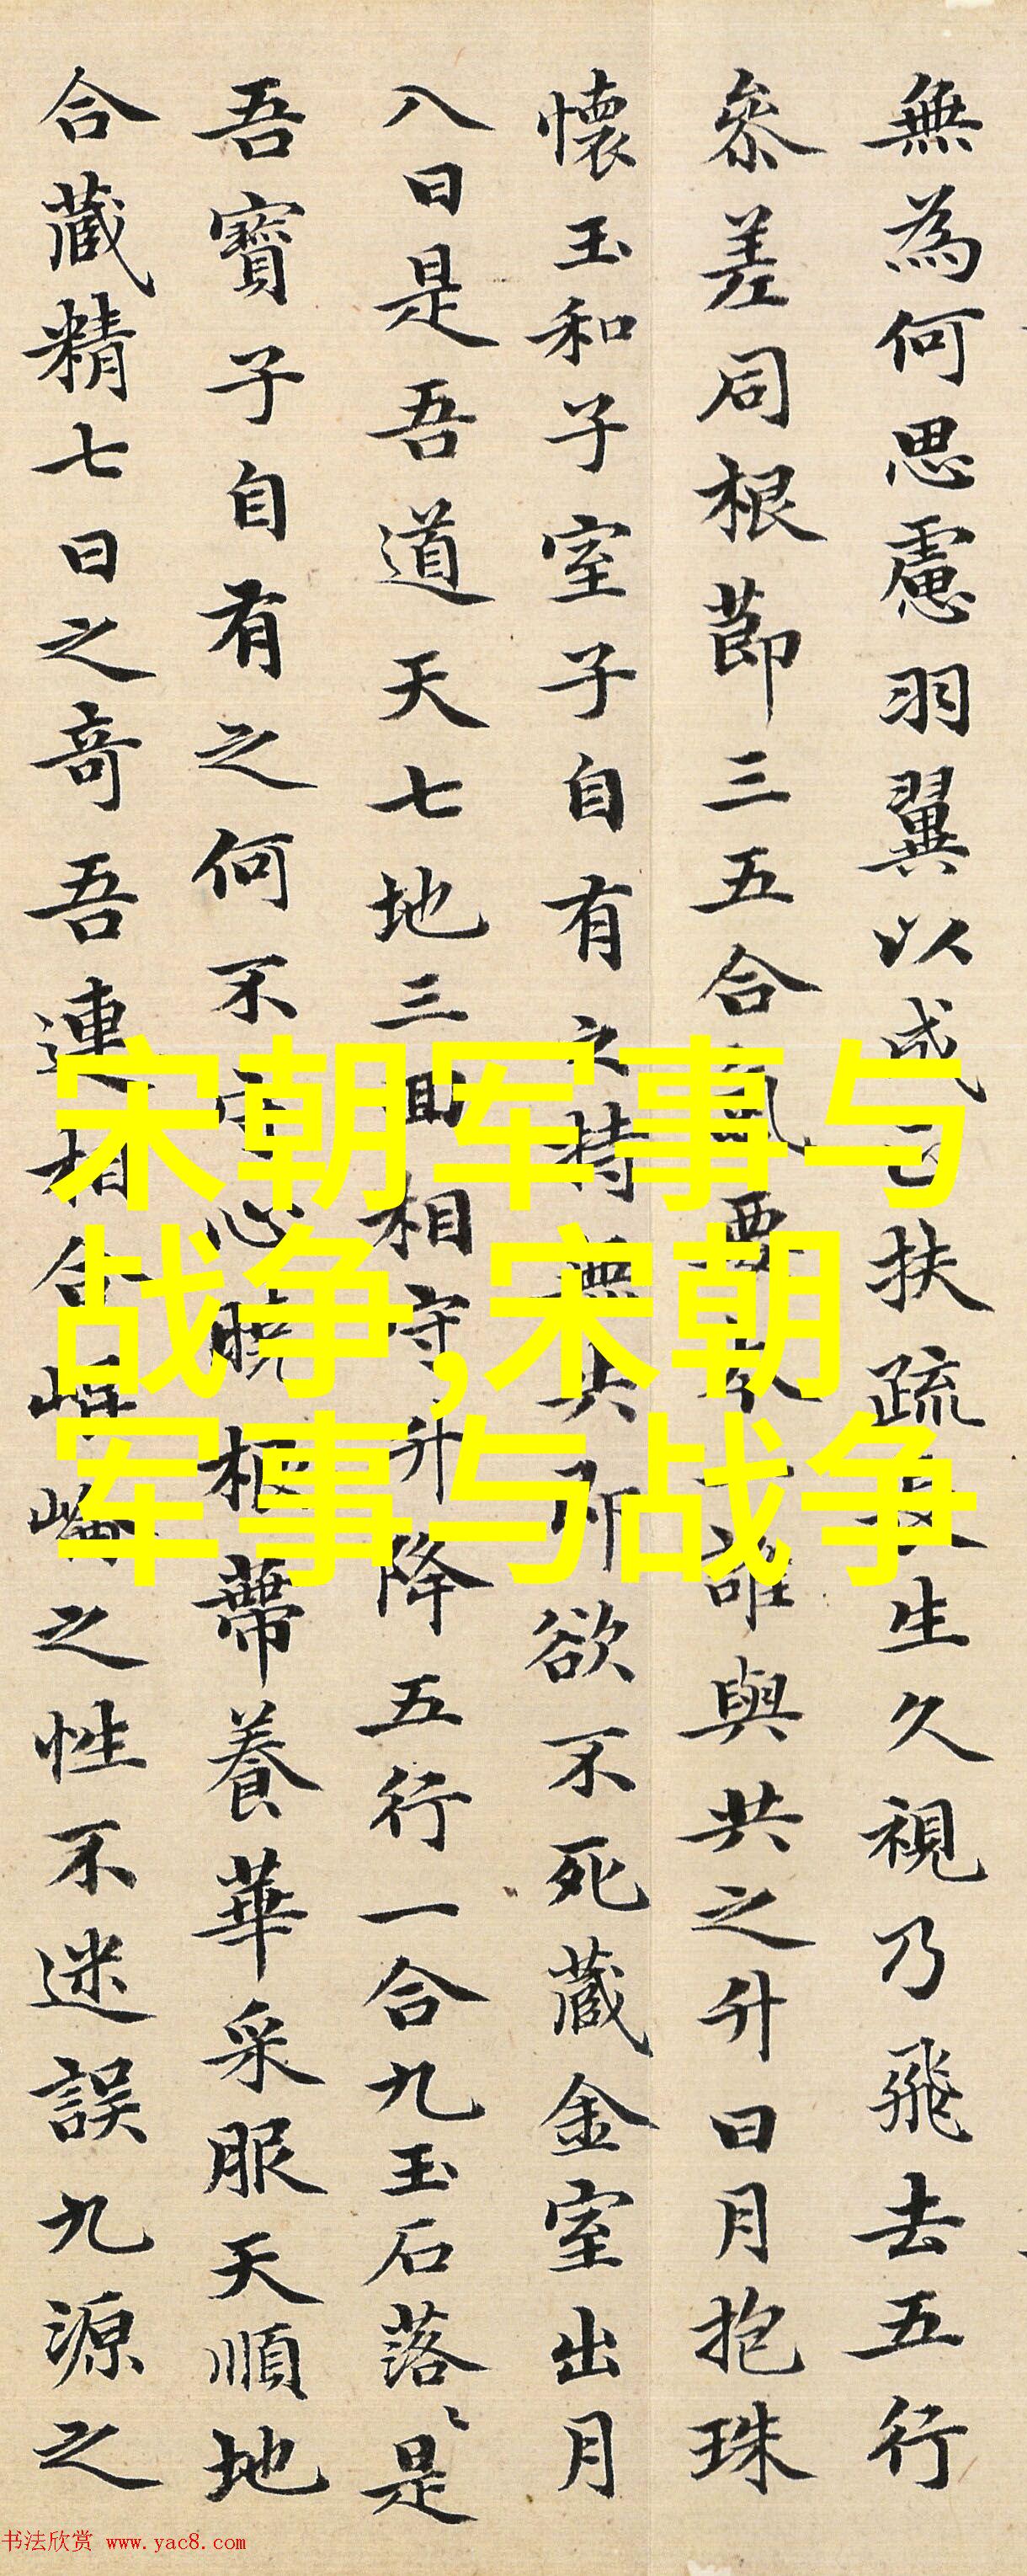 無為何思慮羽翼以成扶疏生久視乃飛去五行
參差同根莭三五合氣要本誰與共之升日月抱珠
懷玉和子室子自有之持無失所欲不死藏金室出月
八日是吾道天七地三囬相守升降五行一合九玉石落〻是
吾寶子自有之何不守心曉根蔕養華采服天順地
合藏精七日之奇吾連相合崐崘之性不迷誤九源之
宋朝军事与
战争,宋朝
军事与战争
书法欣赏 www.yac8.com